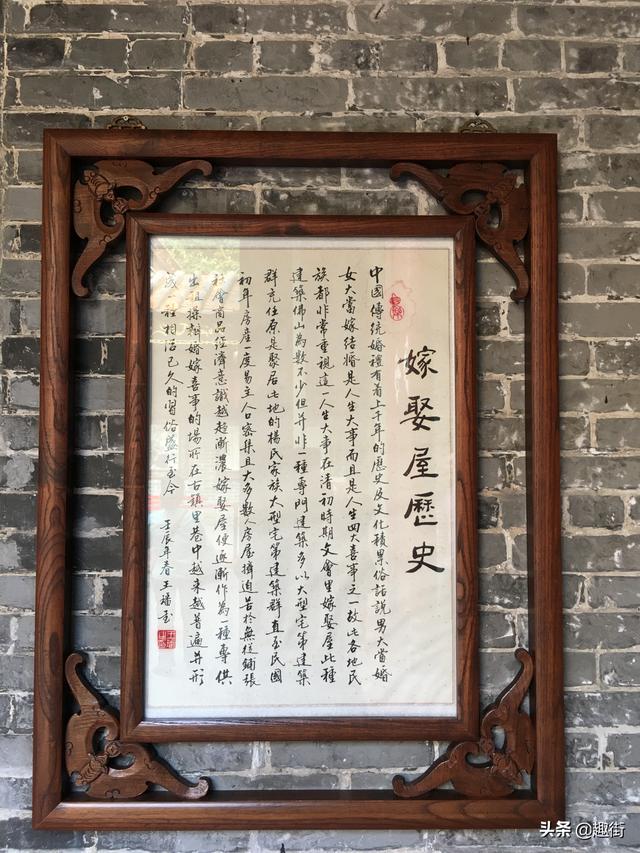 嫁娶屋歷史
中國傳統婚禮有着上千年的歷史及文化積累俗話說男大當婚
女大當嫁結婚是人生大事而且是人生四大喜事之一故此各地民
族都非常重視這一人生大事在清初時期文會里嫁娶屋此種
建築佛山為數不少但并非一種專門建築多以大型宅第建築
群充任原是聚居此地的楊氏家族大型宅第建築群直至民國
初年房産一度易主人口密集且大多數人房屋擠迫苦於無從鋪張
社會商品經濟意識越趨漸濃嫁娶屋便逐漸作為一種專供
出租操辦婚嫁喜事的場所在古鎮里巷中越來越普遍并形
成一種相沿已久的習俗盛行至今 壬辰年春王
头条 @趣街